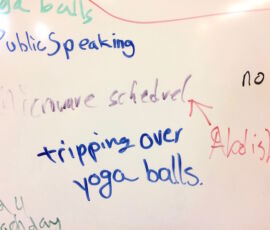 yoga balls
PublicSpeaking
no
Microwave schedvel
Abolish
tripping over
yoga balls.